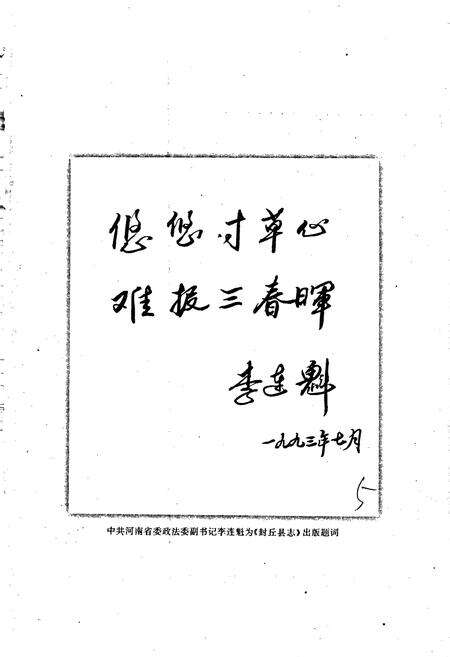 悠悠寸草心
难报三春晖
李连魁
一九九三年七月
5
中共河南省委政法委副书记李连魁为《封丘县志》出版题词